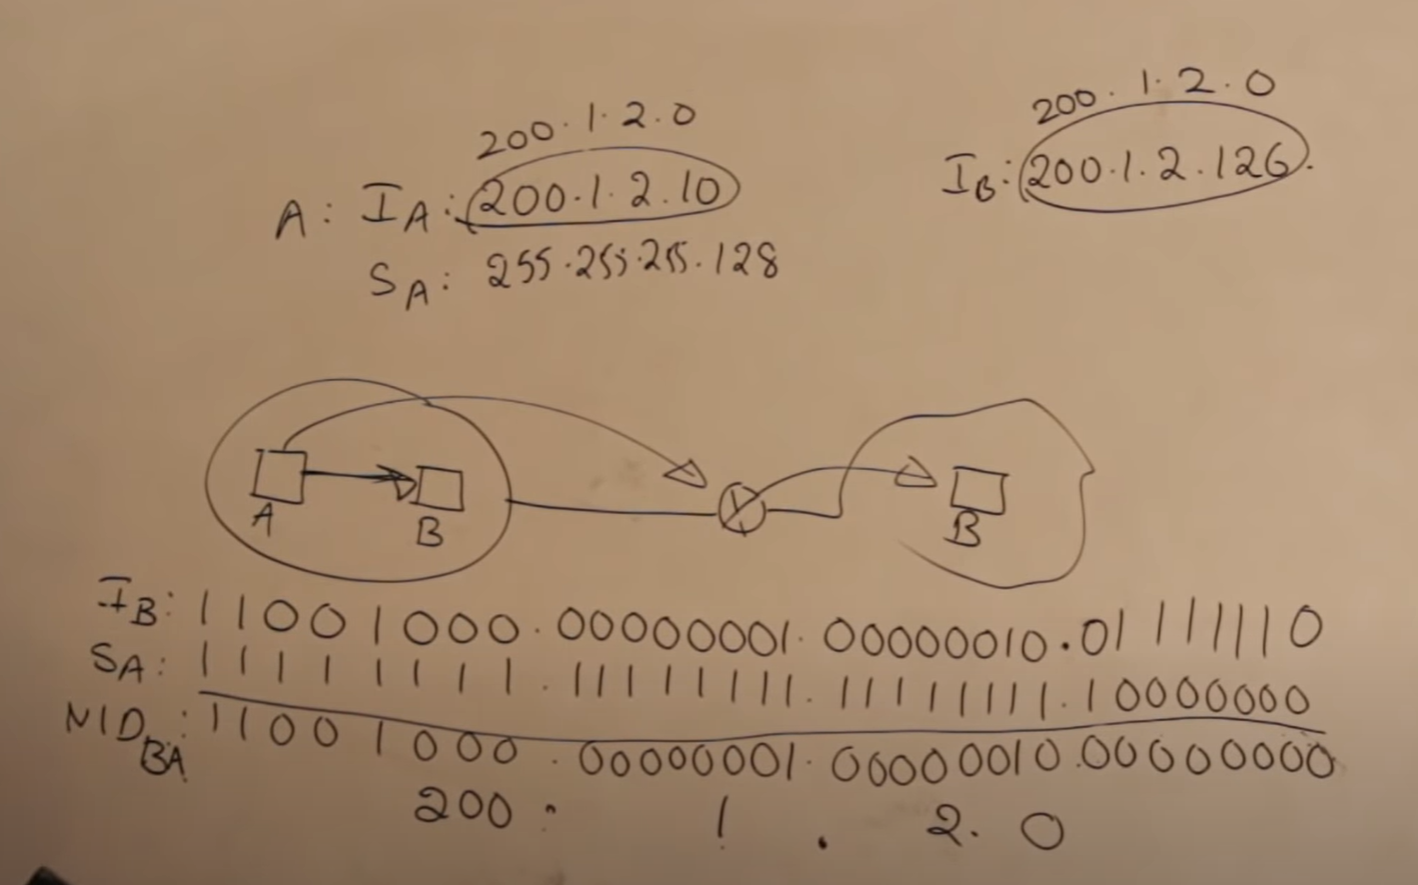 200.1.2.0
A: IA: 200.1.2.10
SA: 255.255.255.128
200.1.2.0
IB: 200.1.2.126.
A
B
B
IB: 11001000.00000001.00000010.01111110
SA: 11111111.11111111.11111111.10000000
NIDBA: 11001000.00000001.00000010.00000000
200.1.2.0